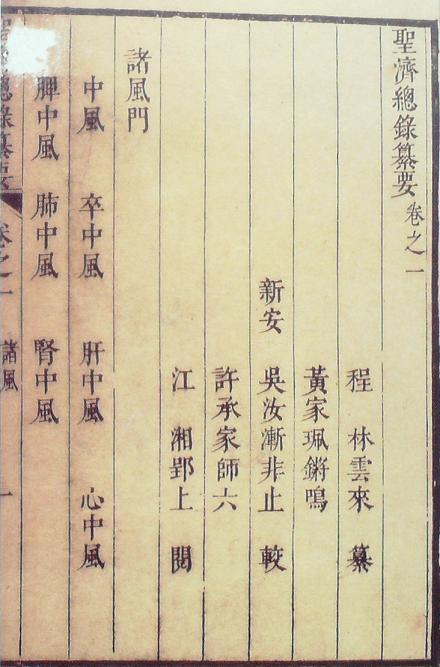 聖濟總錄纂要 卷之一
程 林雲來 纂
黃家珮鏘鳴
新安 吳汝漸非止 較
許承家師六
江 湘郢上 閱
諸風門
中風 卒中風 肝中風 心中風
脾中風 肺中風 腎中風
聖濟總錄纂要 卷之一 諸風 一